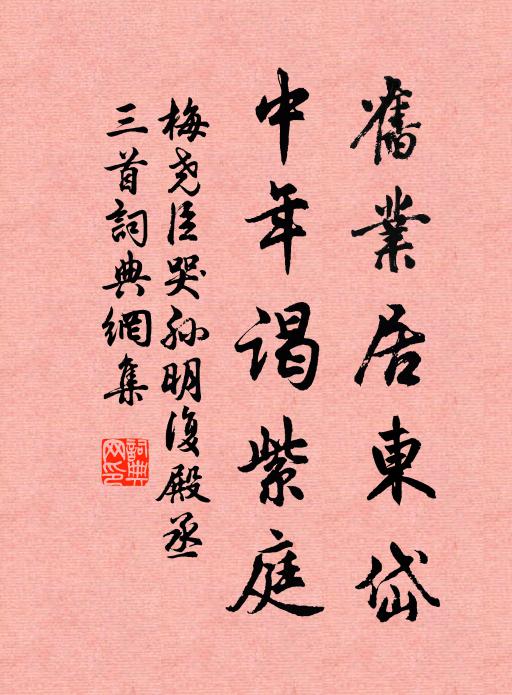 舊業居東岱
中年謁紫庭
梅堯臣哭孫明復殿丞
三首詞典網集
詞典網印